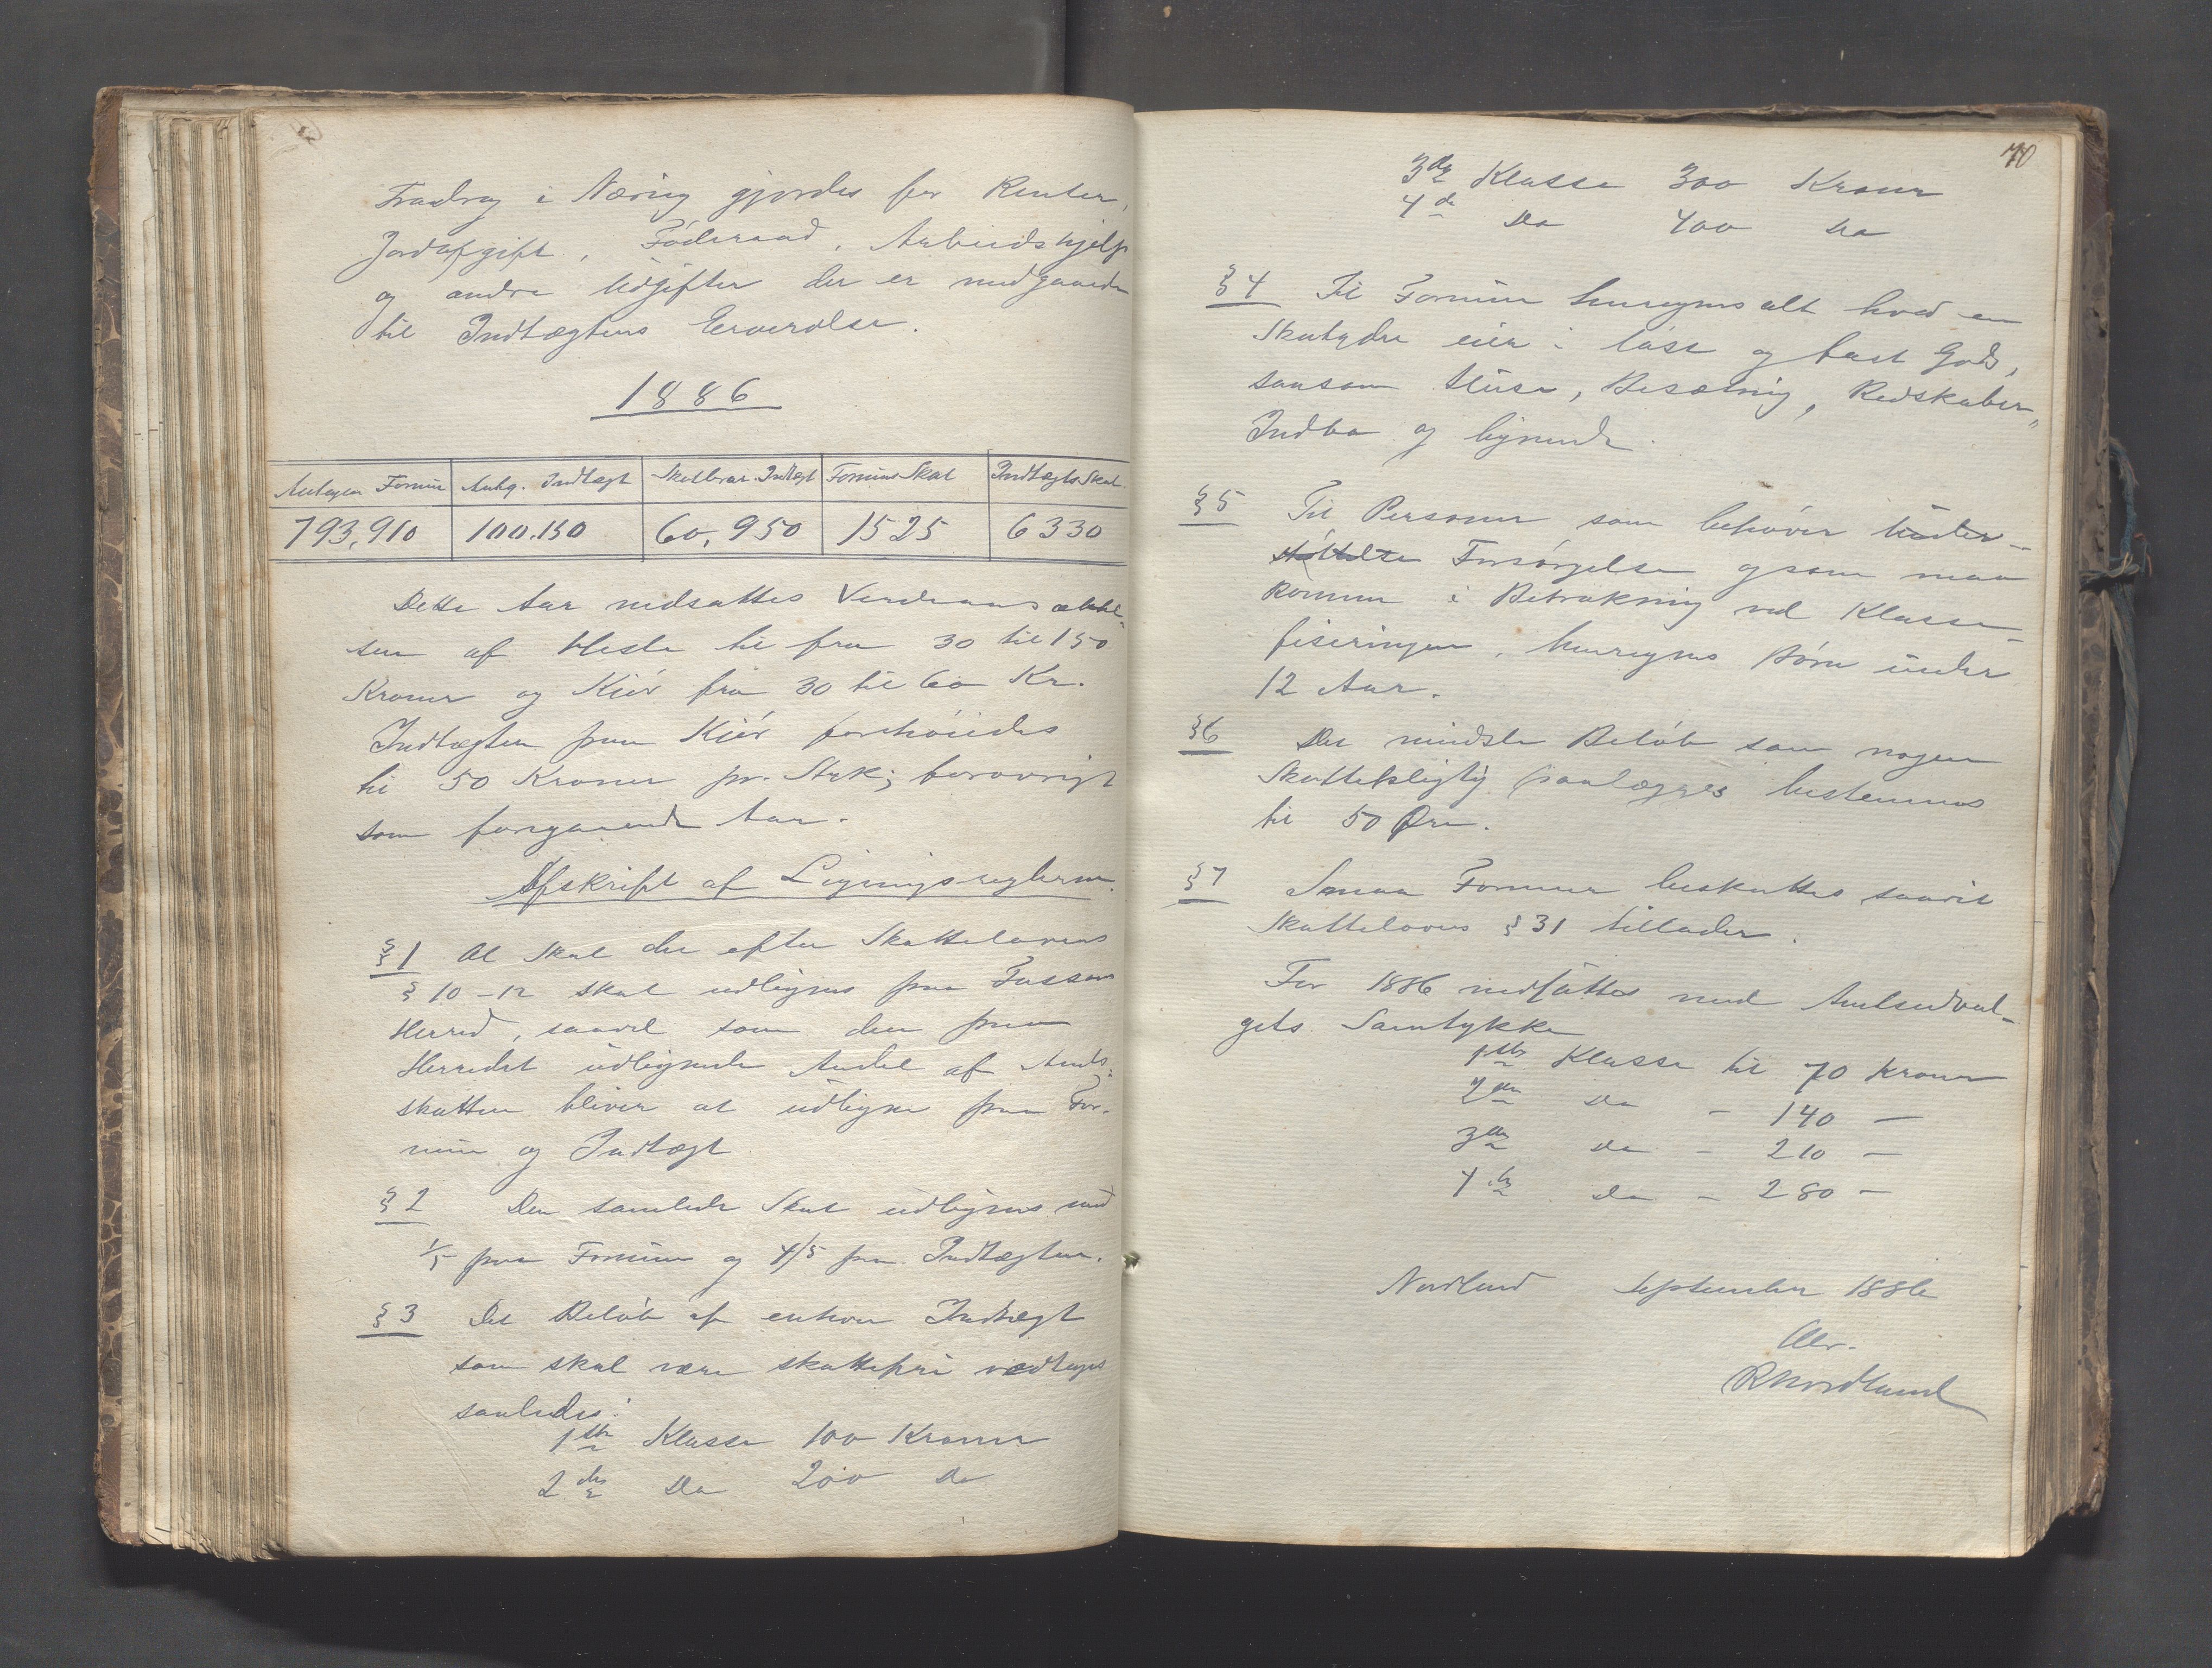 Fradrag i Næring gjordes for Renter,
Jordafgift, Föderaad, Arbeidshjelp
og andre Udgifter der er medgaaede
til Indtægtens Erverelse.
1886
Antagen Formue | Antag. Indtægt | Skatbar. Indtægt | Formues Skat | Indtægts Skat.
793,910 | 100.150 | 60,950 | 1525 | 6330
Dette Aar nedsattes Verdiansættel-
sen af Heste til fra 30 til 150
Kroner og Kjör fra 30 til 60 Kr.
Indtægten paa Kjör forhöiedes
til 50 Kroner pr. Stk; forøvrigt
som foregaaende Aar.
Afskrift af Ligningsreglerne.
§ 1 Al Skat der efter Skattelovens
§ 10-12 skal udlignes paa Fossan
Herred, saavel som den paa
Herredet udlignede Andel af Amts-
skatten bliver at udligne paa For-
mue og Indtægt
§ 2 Den samlede Skat udlignes med
1/5 paa Formue og 4/5 paa Indtægten.
§ 3 Det Belöb af enhver Indtægt
som skal være skattefri vedtages
saaledes:
1ste Klasse 100 Kroner
2den Do 200 Do
70
3die Klasse 300 Kroner
4de Do 400 Do
§ 4 Til Formue henregnes alt hvad en
Skatyder eier i löst og fast Gods,
saasom Huse, Besætning, Redskaber,
Indbo og lignende.
§ 5 Til Personer som behøver Under-
stöttelse Forsörgelse og som maa
komme i Betraktning ved Klasse-
fiseringen, henregnes Börn under
12 Aar.
§ 6 Det mindste Belöb som nogen
Skattepligtig paalægges bestemmes
til 50 Øre.
§ 7 Smaa Formuer beskattes saavit
Skattelovens § 31 tillader.
For 1886 nedsattes med Amtsudval-
gets Samtykke
1ste Klasse til 70 Kroner
2den Do - 140 -
3die Do - 210 -
4de Do - 280 -
Nordlund September 1886
RNordlund